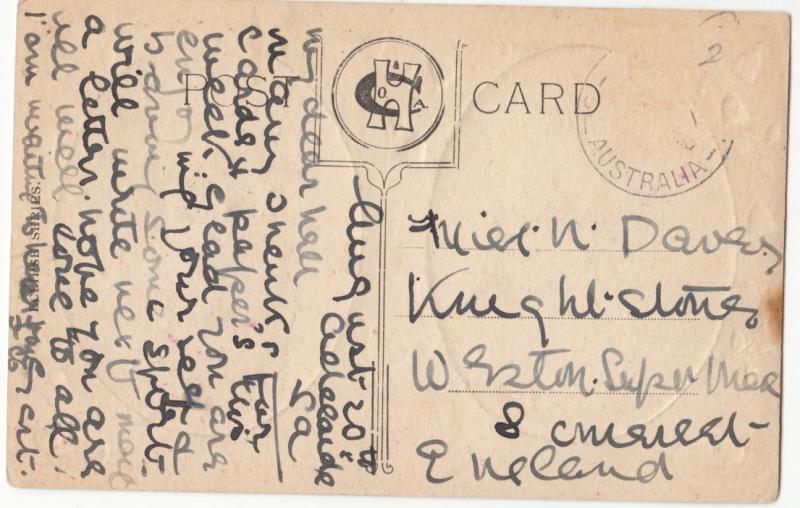 POST CARD
AUSTRALIA
2
August 20th
Adelaide
S a
my dear nell
many thanks for
cards & papers this
week. glad you are
enjoying your rest &
having some sport.
will write next mail
a letter. hope you are
all well love to all.
I am waiting to hear
SERIES.
Miss. N. Davey
Knightstone
Weston. Super Mare
Somerset
England